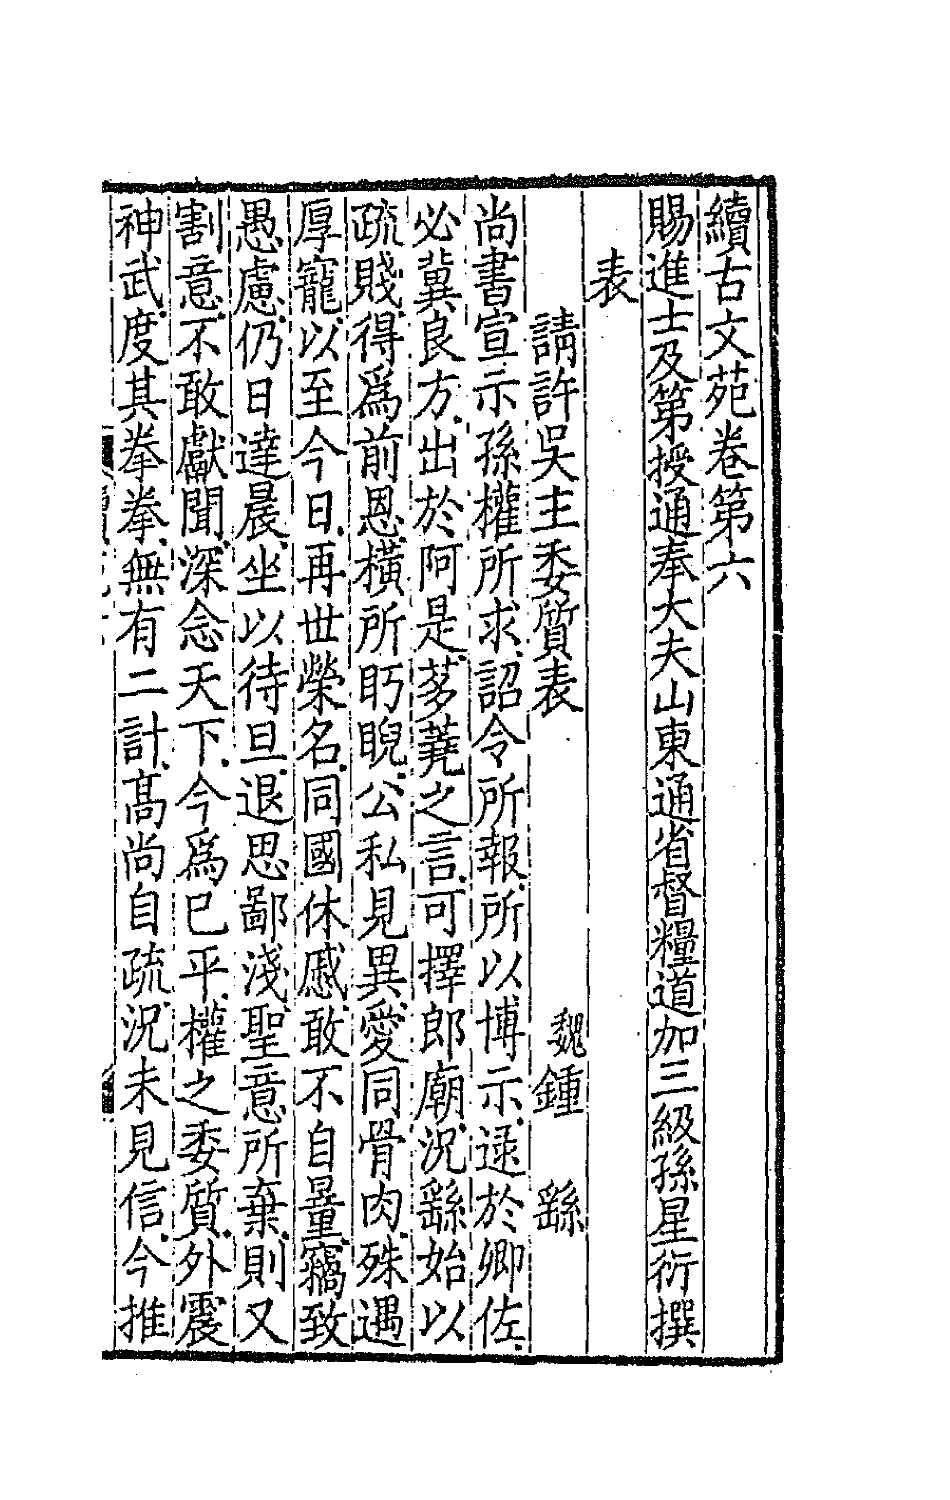 續古文苑卷第六
賜進士及第授通奉大夫山東通省督糧道加三級孫星衍撰
表
請許吳主委質表 魏鍾繇
尚書宣示孫權所求詔令所報所以博示逯於卿佐
必冀良方出於阿是芻蕘之言可擇郎廟況繇始以
疏賤得爲前恩橫所眄睨公私見異愛同骨肉殊遇
厚寵以至今日再世榮名同國休慼敢不自量竊致
愚慮仍日達晨坐以待旦退思鄙淺聖意所棄則又
割意不敢獻聞深念天下今爲已平權之委質外震
神武度其拳拳無有二計高尚自疏況未見信今推